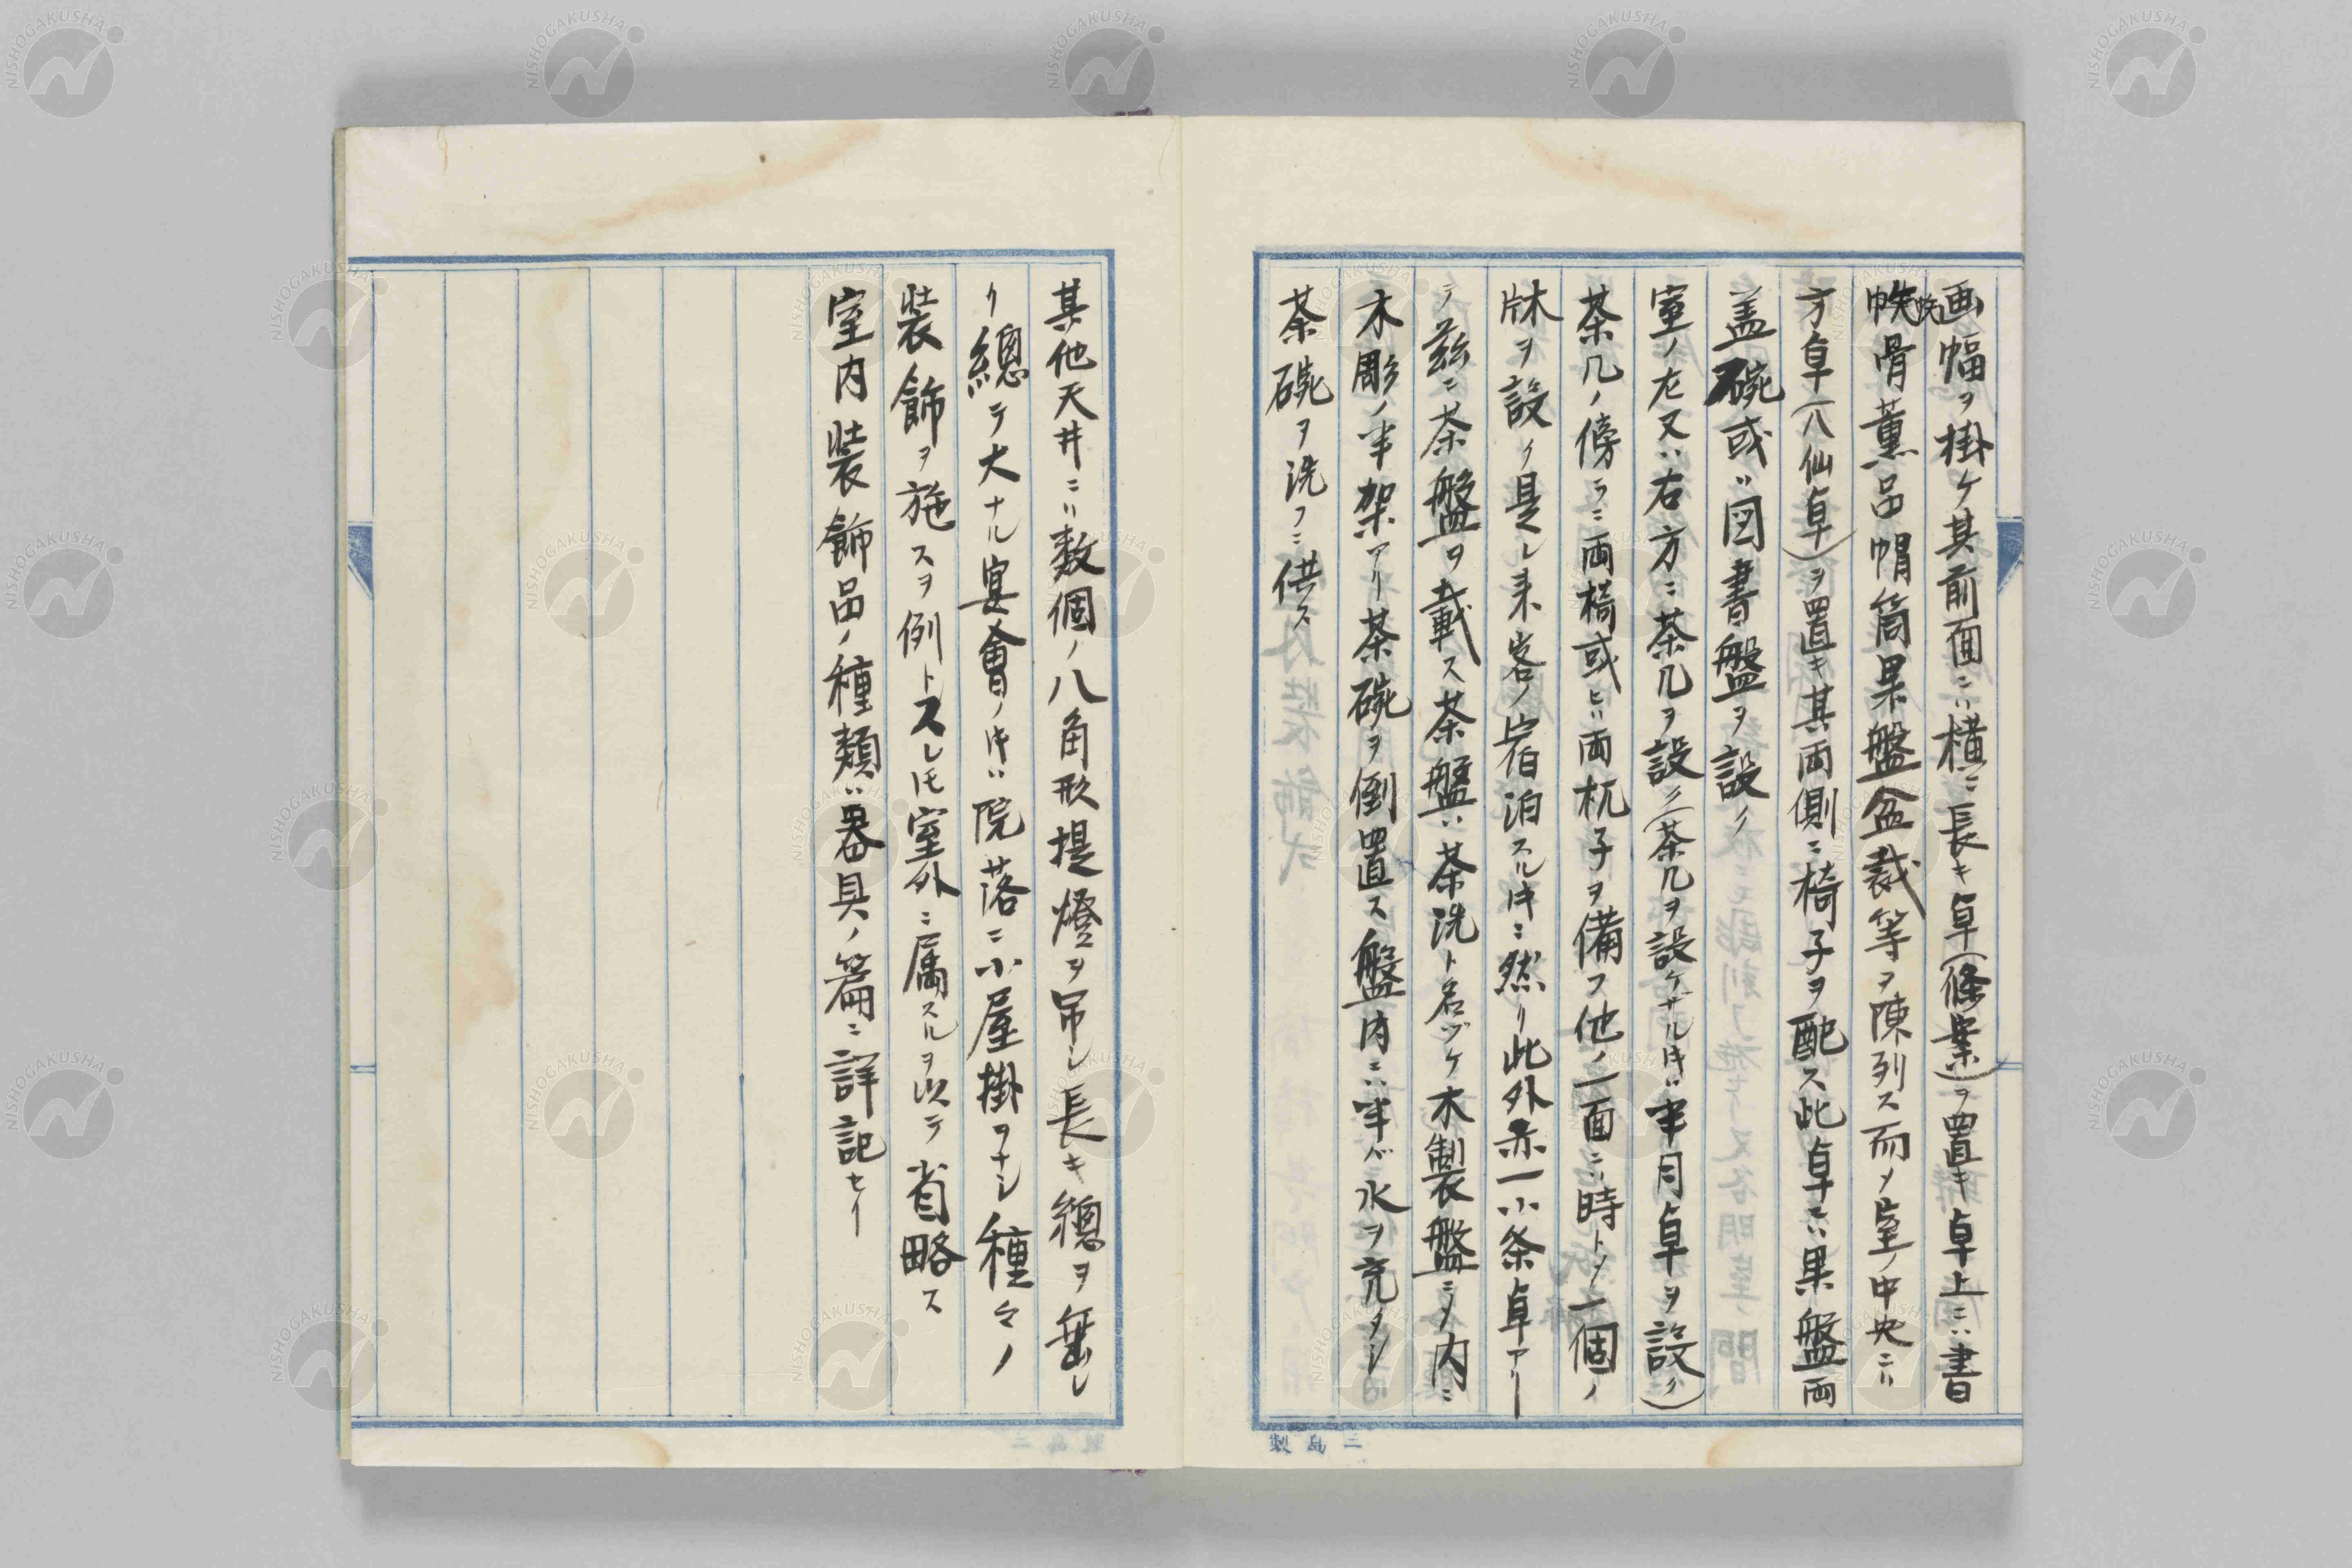 画幅ヲ掛ケ其前面ニハ横ニ長キ卓(條案)ヲ置キ卓上ニハ書
帙骨董品帽筒果盤盆裁等ヲ陳列ス而〆室ノ中央ニハ
方卓(八仙卓)ヲ置キ其両側ニ椅子ヲ配ス此卓ニハ果盤両
盖碗或ハ図書盤ヲ設ク
室ノ左又ハ右方ニ茶几ヲ設ク(茶几ヲ設ケザル𪜈ハ半月卓ヲ設ク)
茶几ノ傍ラニ両椅或ヒハ両杌子ヲ備フ他ノ一面ニハ時ト〆一個ノ
牀ヲ設ク是レ来客ノ宿泊スル時ニ然リ此外亦一小条卓アリ
テ茲ニ茶盤ヲ載ス茶盤ハ茶洗ト名ヅケ木製盤ニ〆内ニ
木彫ノ半架アリ茶碗ヲ倒置ス盤内ニハ半バ水ヲ充タシ
茶碗ヲ洗フニ供ス
其他天井ニハ数個ノ八角形提燈ヲ吊シ長キ總ヲ垂レ
リ總テ大ナル宴會ノ時ハ院落ニ小屋掛ヲナシ種々ノ
装飾ヲ施スヲ例トスレ𪜈室外ニ属スルヲ以テ省略ス
室内装飾品ノ種類ハ器具ノ篇ニ詳記セリ
三島製
NISHOGAKUSHA